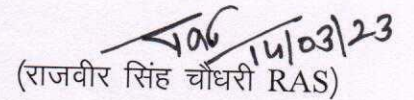 14/03/23
(राजवीर सिंह चौधरी RAS)